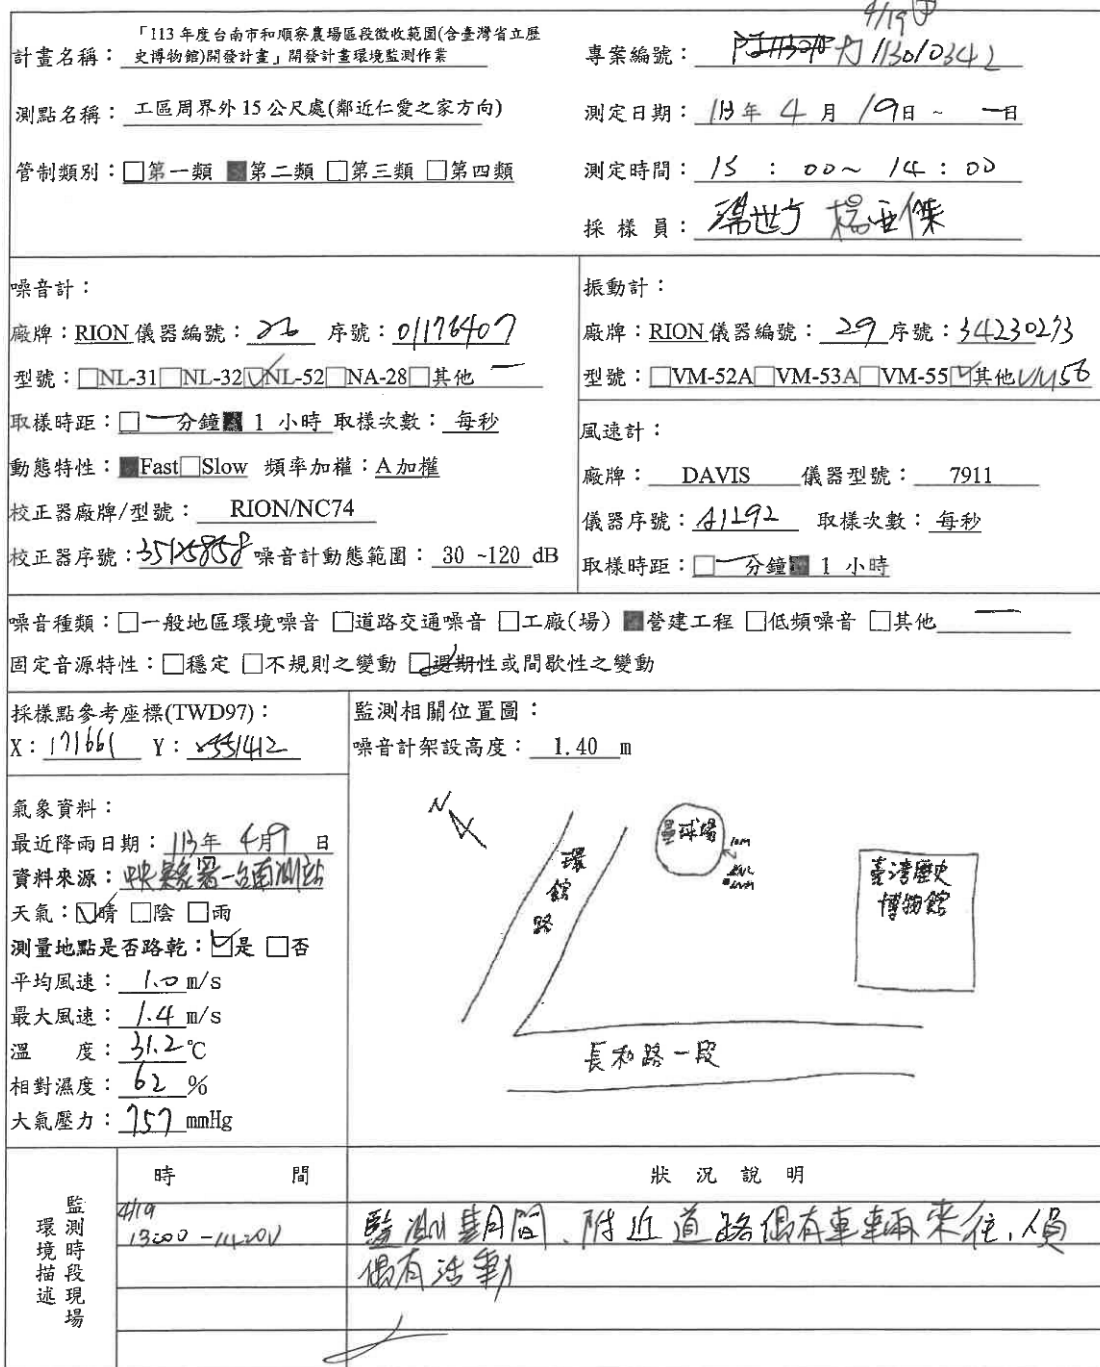 4/19
「113 年度台南市和順寮農場區段徵收範圍(含臺灣省立歷
計畫名稱： 史博物館)開發計畫」開發計畫環境監測作業 專案編號： 113010342
測點名稱： 工區周界外 15 公尺處(鄰近仁愛之家方向) 測定日期： 113年 4 月 19日 ~ 一日
管制類別：□第一類 ■第二類 □第三類 □第四類 測定時間： 13 ： 00～ 14：00
採 樣 員： 楊世方 楊亞傑
噪音計：
廠牌：RION 儀器編號： 26 序號：01176407
型號：□NL-31□NL-32☑NL-52□NA-28□其他 一
取樣時距：□ 一 分鐘■ 1 小時 取樣次數： 每秒
動態特性：■Fast□Slow 頻率加權：A 加權
校正器廠牌/型號： RION/NC74
校正器序號：35125858 噪音計動態範圍： 30 ~120 dB
振動計：
廠牌：RION 儀器編號： 29 序號：34230273
型號：□VM-52A□VM-53A□VM-55☑其他VM56
風速計：
廠牌： DAVIS 儀器型號： 7911
儀器序號：A1292 取樣次數：每秒
取樣時距：□ 一 分鐘■ 1 小時
噪音種類：□一般地區環境噪音 □道路交通噪音 □工廠(場) ■營建工程 □低頻噪音 □其他 一
固定音源特性：□穩定 □不規則之變動 ☑週期性或間歇性之變動
採樣點參考座標(TWD97)：
X：171661 Y：2551412
氣象資料：
最近降雨日期：113年 4月9 日
資料來源：中央氣象署-台南測站
天氣：☑晴 □陰 □雨
測量地點是否路乾：☑是 □否
平均風速： 1.0 m/s
最大風速： 1.4 m/s
溫 度： 31.2 ℃
相對濕度： 62 %
大氣壓力： 757 mmHg
監測相關位置圖：
噪音計架設高度： 1.40 m
N
環館路
壘球場
10M
臺灣歷史
博物館
長和路一段
監測時段現場
環境描述
時 間 狀 況 說 明
4/19
13:00 -14:00 監測期間、附近道路偶有車輛來往,人員
偶有活動